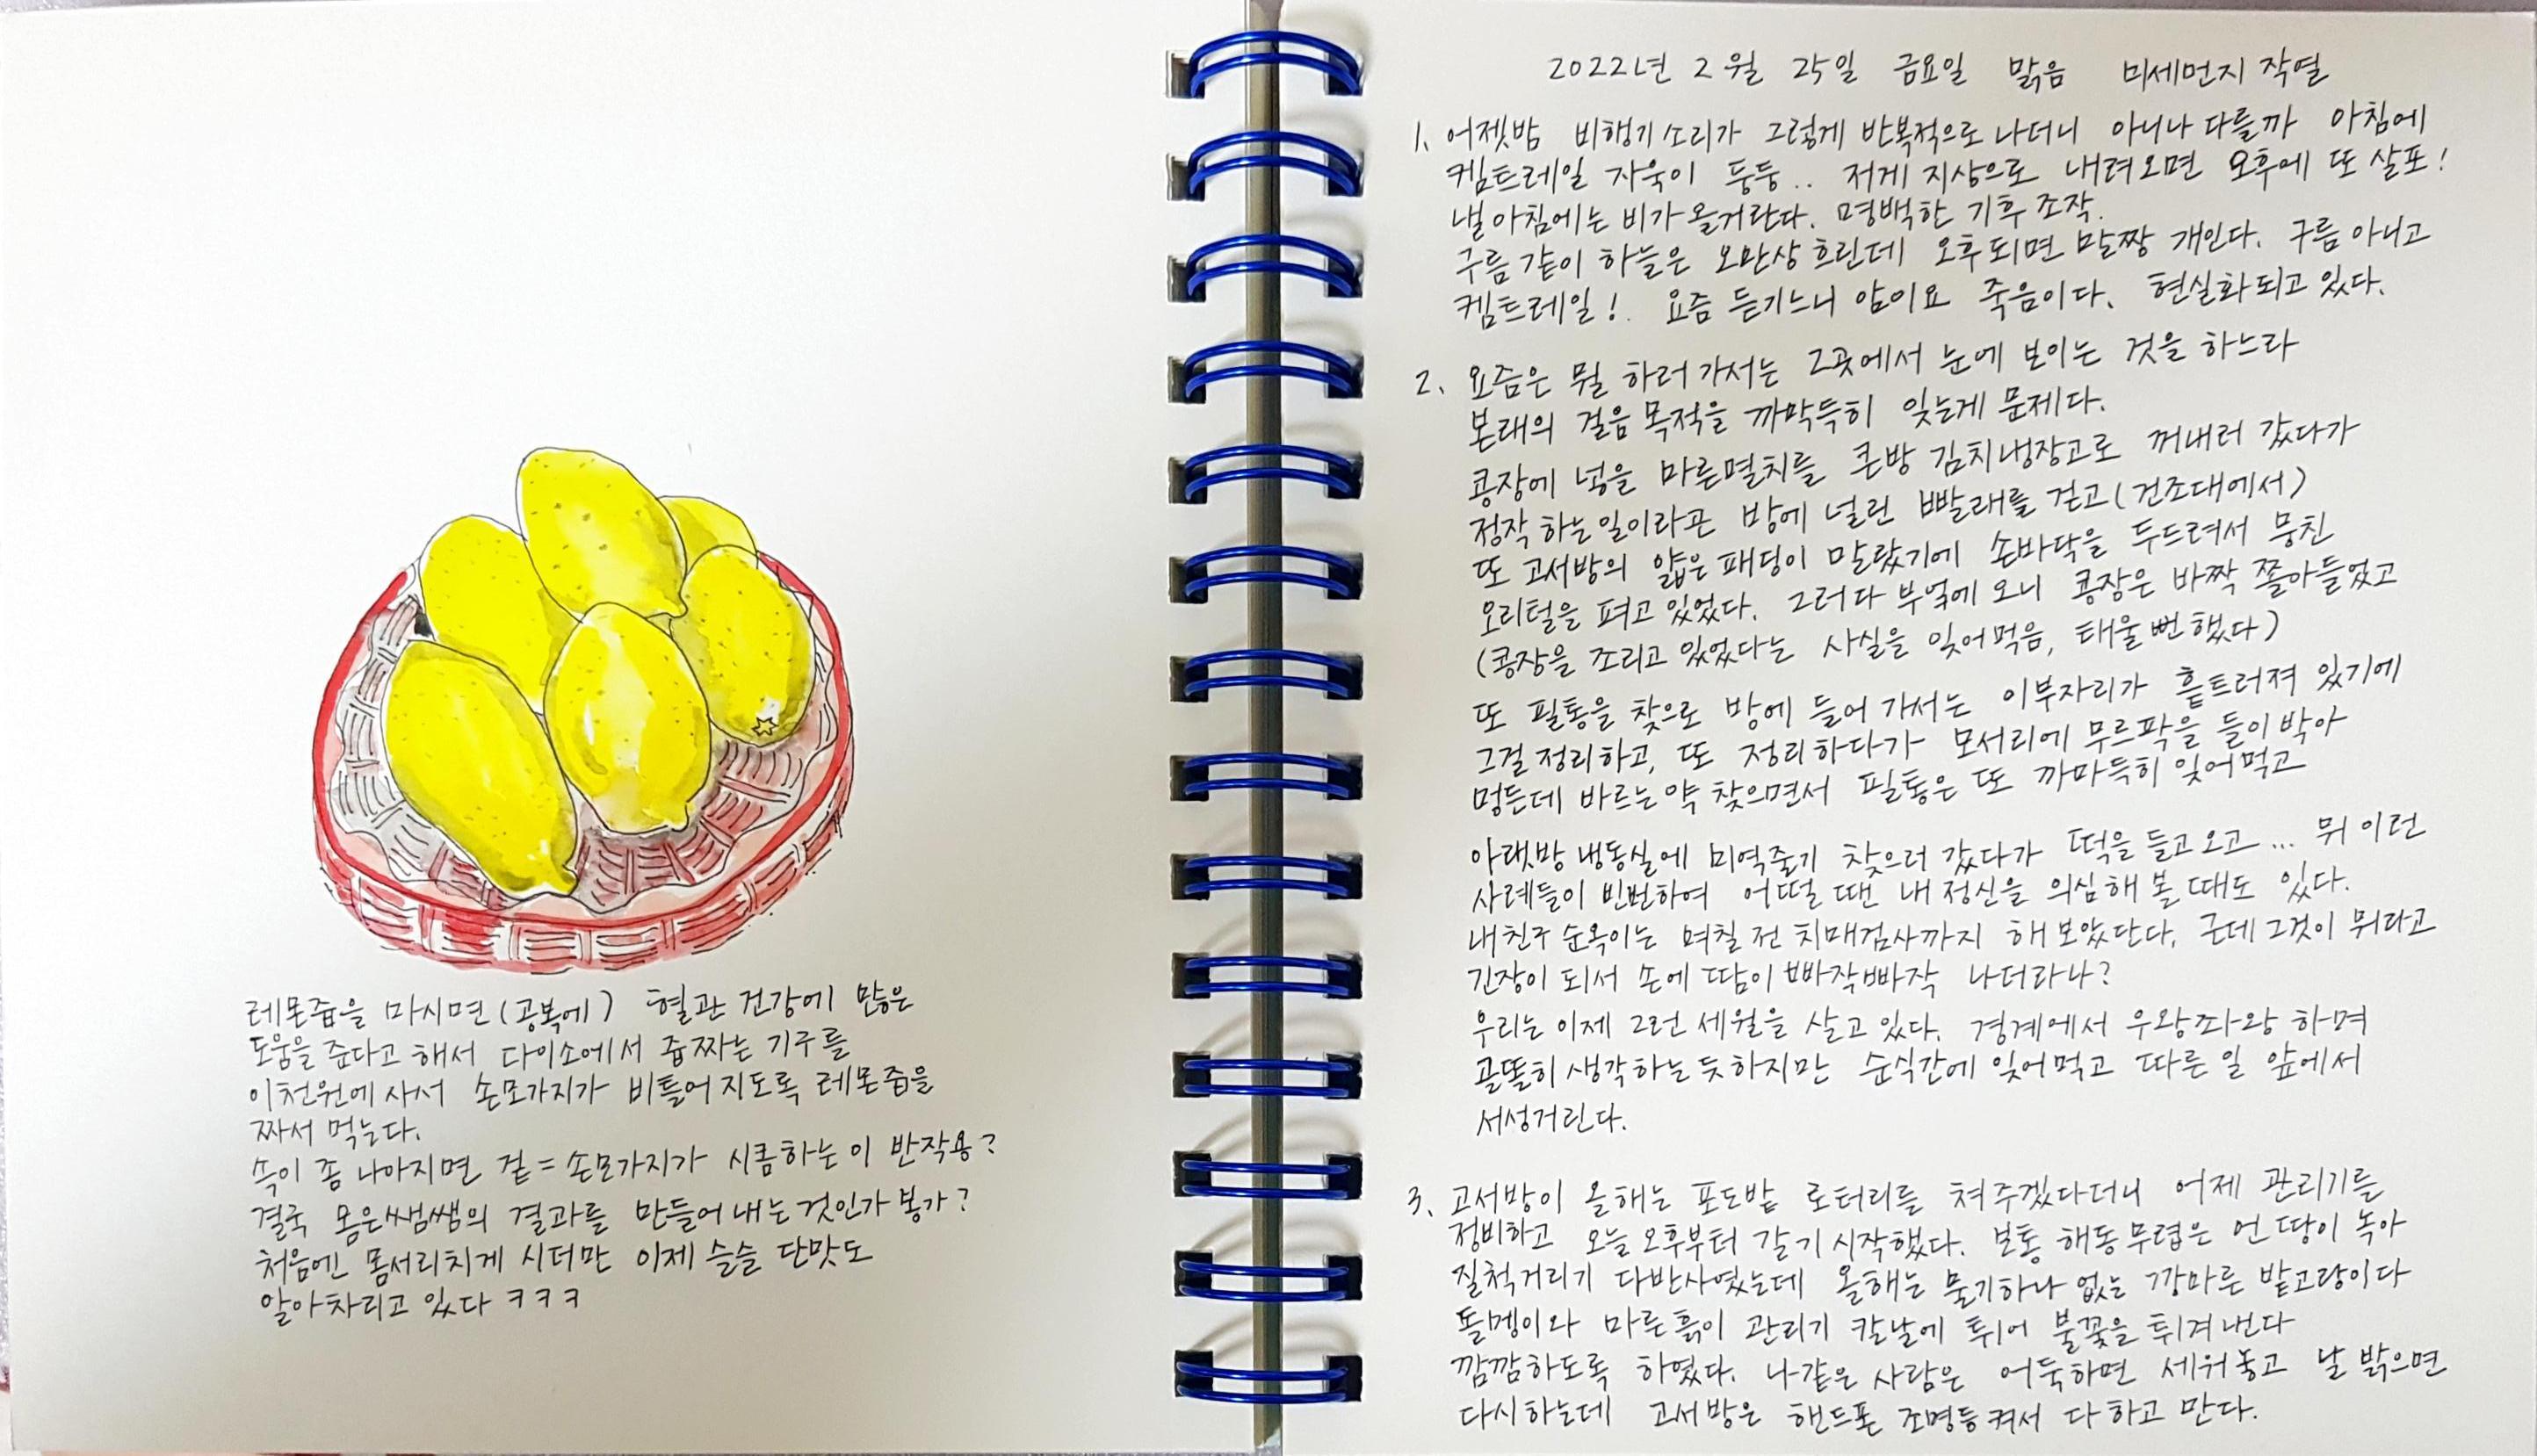 레몬즙을 마시면(공복에) 혈관 건강에 많은
도움을 준다고 해서 다이소에서 즙짜는 기구를
이천원에 사서 손모가지가 비틀어지도록 레몬즙을
짜서 먹는다.
속이 좀 나아지면 겉=손모가지가 시큼하는 이 반작용?
결국 몸은 쌤쌤의 결과를 만들어 내는 것인가 봉가?
처음엔 몸서리치게 시더만 이제 슬슬 단맛도
알아차리고 있다 ㅋㅋㅋ
2022년 2월 25일 금요일 맑음 미세먼지 작열
1. 어젯밤 비행기 소리가 그렇게 반복적으로 나더니 아니나 다를까 아침에
켐트레일 자욱이 둥둥.. 저게 지상으로 내려오면 오후에 또 살포!
낼 아침에는 비가 올거란다. 명백한 기후 조작.
구름 같이 하늘은 오만상 흐린데 오후되면 말짱 개인다. 구름 아니고
켐트레일! 요즘 듣기느니 암이요 죽음이다. 현실화 되고 있다.
2. 요즘은 뭘 하러 가서는 그곳에서 눈에 보이는 것을 하느라
본래의 걸음 목적을 까막득히 잊는게 문제다.
콩장에 넣을 마른멸치를 큰방 김치냉장고로 꺼내러 갔다가
정작 하는일이라곤 방에 널린 빨래를 걷고(건조대에서)
또 고서방의 얇은 패딩이 말랐기에 손바닥을 두드려서 뭉친
오리털을 펴고 있었다. 그러다 부엌에 오니 콩장은 바짝 쫄아들었고
(콩장을 조리고 있었다는 사실을 잊어먹음, 태울뻔 했다)
또 필통을 찾으로 방에 들어 가서는 이부자리가 흩트러져 있기에
그걸 정리하고, 또 정리하다가 모서리에 무르팍을 들이 박아
멍든데 바르는 약 찾으면서 필통은 또 까마득히 잊어 먹고
아랫방 냉동실에 미역줄기 찾으러 갔다가 떡을 들고 오고... 뭐 이런
사례들이 빈번하여 어떨 땐 내 정신을 의심해 볼 때도 있다.
내 친구 순옥이는 며칠 전 치매검사까지 해 보았단다. 근데 그것이 뭐라고
긴장이 되서 손에 땀이 빠작빠작 나더라나?
우리는 이제 그런 세월을 살고 있다. 경계에서 우왕좌왕 하며
골똘히 생각하는 듯 하지만 순식간에 잊어먹고 따른 일 앞에서
서성거린다.
3. 고서방이 올해는 포도밭 로터리를 쳐주겠다더니 어제 관리기를
정비하고 오늘 오후부터 갈기 시작했다. 보통 해동무렵은 언 땅이 녹아
질척거리기 다반사였는데 올해는 물기하나 없는 깡마른 밭고랑이다
돌멩이와 마른 흙이 관리기 칼날에 튀어 불꽃을 튀겨 낸다
깜깜하도록 하였다. 나같은 사람은 어둑하면 세워놓고 날 밝으면
다시하는데 고서방은 핸드폰 조명등 켜서 다 하고 만다.